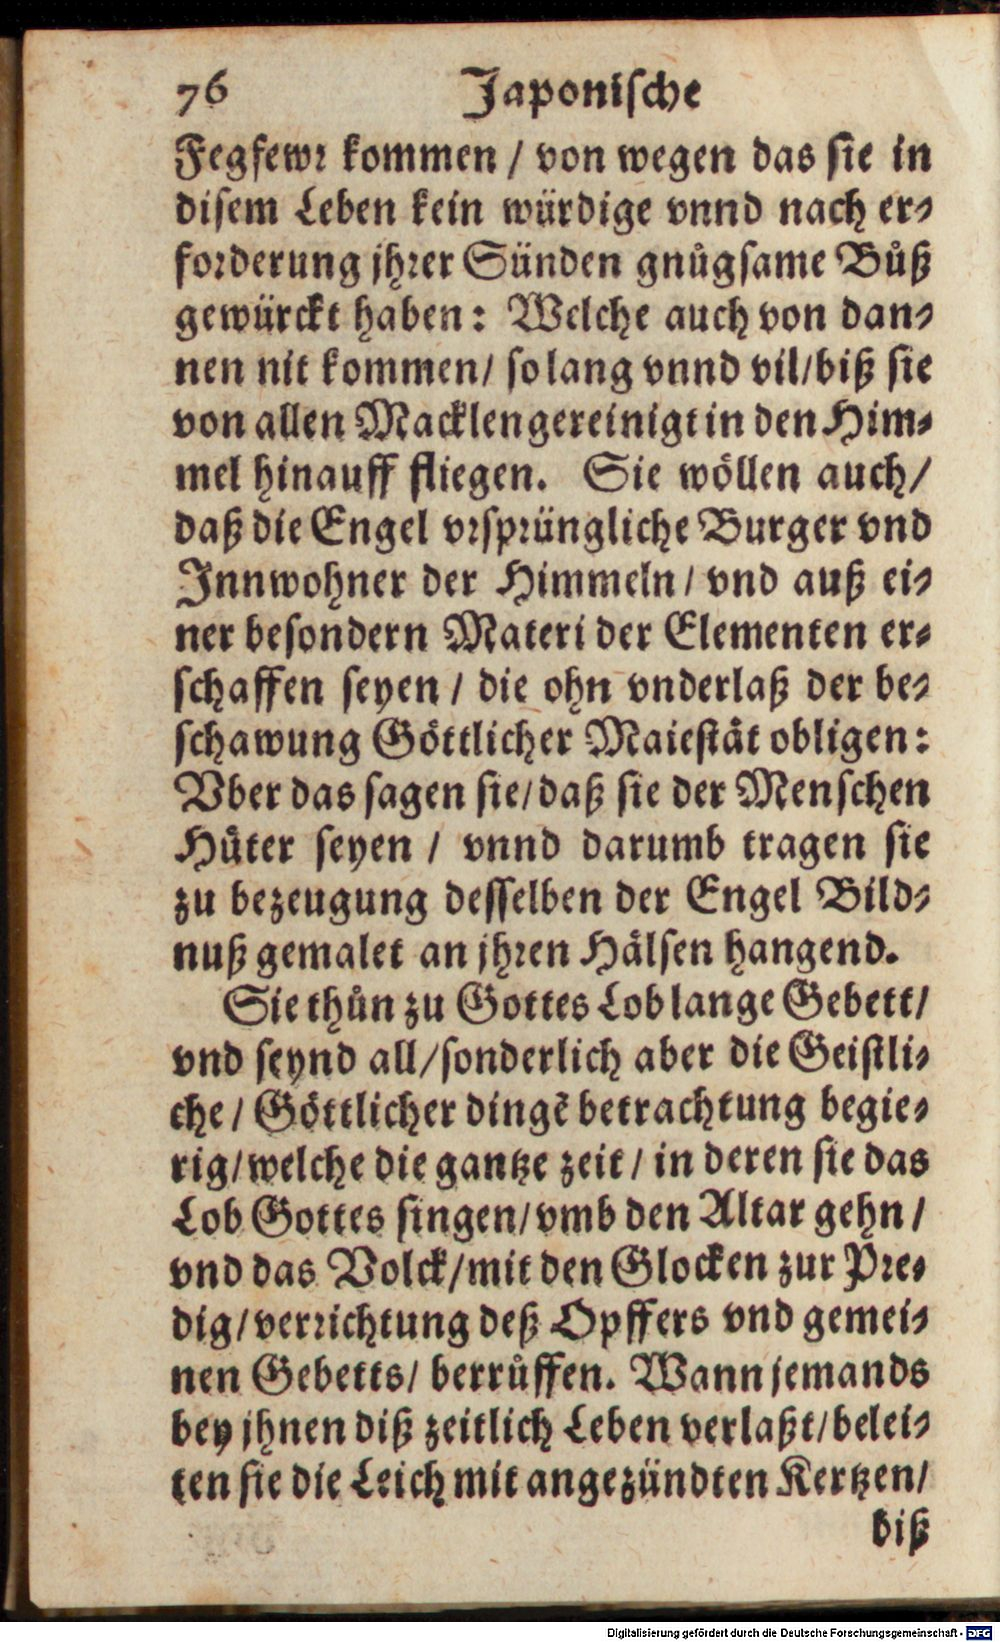 76 Japonische
Fegfewr kommen / von wegen das sie in
disem Leben kein würdige vnnd nach er-
forderung jhrer Sünden gnůgsame Bůß
gewürckt haben: Welche auch von dan-
nen nit kommen / so lang vnnd vil / biß sie
von allen Macklen gereinigt in den Him-
mel hinauff fliegen. Sie wöllen auch /
daß die Engel vrsprüngliche Burger vnd
Innwohner der Himmeln / vnd auß ei-
ner besondern Materi der Elementen er-
schaffen seyen / die ohn vnderlaß der be-
schawung Göttlicher Maiestät obligen:
Vber das sagen sie / daß sie der Menschen
Hüter seyen / vnnd darumb tragen sie
zu bezeugung desselben der Engel Bild-
nuß gemalet an jhren Hälsen hangend.
Sie thůn zu Gottes Lob lange Gebett /
vnd seynd all / sonderlich aber die Geistli-
che / Göttlicher dingē betrachtung begie-
rig / welche die gantze zeit / in deren sie das
Lob Gottes singen / vmb den Altar gehn /
vnd das Volck / mit den Glocken zur Pre-
dig / verrichtung deß Opffers vnd gemei-
nen Gebetts / berrůffen. Wann jemands
bey jhnen diß zeitlich Leben verlaßt / belei-
ten sie die Leich mit angezündten Kertzen /
biß
Digitalisierung gefördert durch die Deutsche Forschungsgemeinschaft - DFG